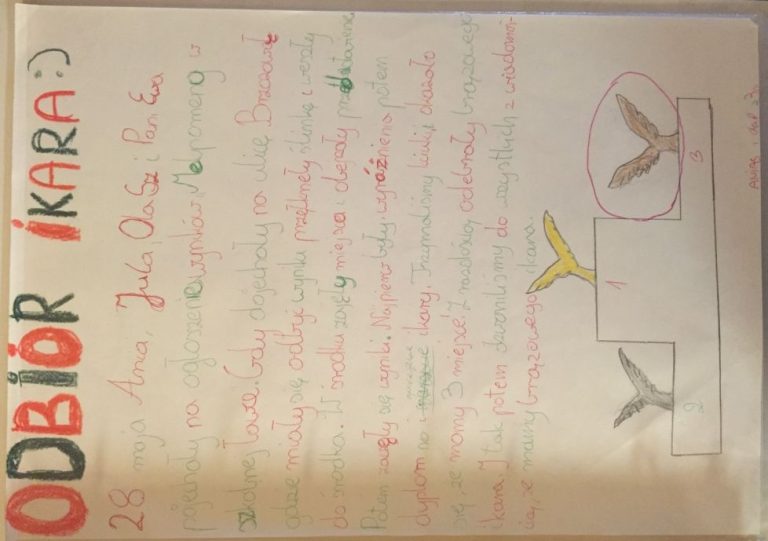 ODBIÓR IKARA:)
28 maja Ania, Jula, Ola Sz i Pani Ewa
pojechały na ogłoszenie wyników, Melpomeną w
szkolnej ławie. Gdy dojechały na ulicę Brzozową
gdzie miały się odbyć wyniki przełknęły ślinkę i weszły
do środka. W środku zajęły miejsca i obejrzały przedstawienie
Potem zaczęły się wyniki. Najpierw były wyróżnienia potem
dyplom no i miejsce ikary. Trzymaliśmy kciuki, okazało
się, że mamy 3 miejsce! Z radością odebrały brązowego
ikara. I tak potem dzwoniliśmy do wszystkich z wiadomoś-
cią, że mamy brązowego ikara.
2
1
3